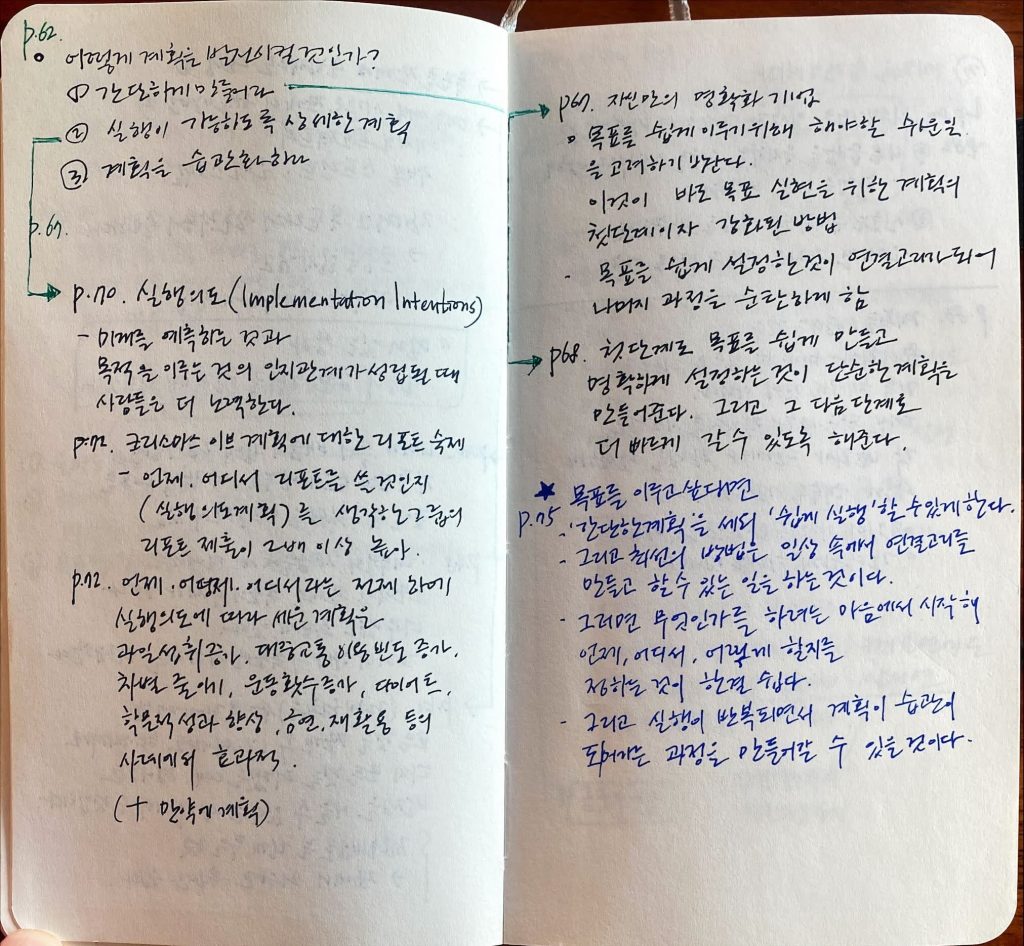 p.62.
어떻게 계획을 발전시킬것인가?
① 간단하게 만들어라
② 실행이 가능하도록 상세한 계획
③ 계획을 습관화하라
p.67.
p.70. 실행의도(Implementation Intentions)
- 미래를 예측하는 것과
목적을 이루는 것의 인지관계가 성립될 때
사람들은 더 노력한다.
p.72. 크리스마스 이브 계획에 대한 리포트 숙제
- 언제. 어디서 리포트를 쓸 것인지
(실행의도계획)를 생각하는 그룹의
리포트 제출이 2배 이상 높아.
p.72. 언제. 어떻게. 어디서라는 전제 하에
실행의도에 따라 세운 계획은
과일섭취증가. 대중교통 이용빈도 증가.
차별 줄이기, 운동횟수증가, 다이어트,
학문적성과 향상, 금연, 재활용 등의
사례에의 효과적.
(+ 만약에 계획)
p67. 자신만의 명확화 기법
목표를 쉽게 이루기 위해 해야할 쉬운일
을 고려하기 바란다.
이것이 바로 목표 실현을 위한 계획의
첫단계이자 강화된 방법
- 목표를 쉽게 설정하는것이 연결고리가 되어
나머지 과정을 순탄하게 함
p68. 첫단계로 목표를 쉽게 만들고
명확하게 설정하는 것이 단순한 계획을
만들어준다. 그리고 그 다음단계로
더 빠르게 갈 수 있도록 해준다.
★ 목표를 이루고 싶다면
p.75 '간단한계획'을 세워 '쉽게 실행'할 수 있게 한다.
- 그리고 최선의 방법은 일상 속에서 연결고리를
만들고 할 수 있는 일을 하는 것이다.
- 그러면 무엇인가를 하려는 마음에서 시작해
언제, 어디서, 어떻게 할지를
정하는 것이 한결 쉽다.
- 그리고 실행이 반복되면서 계획이 습관이
되어가는 과정을 만들어갈 수 있을 것이다.